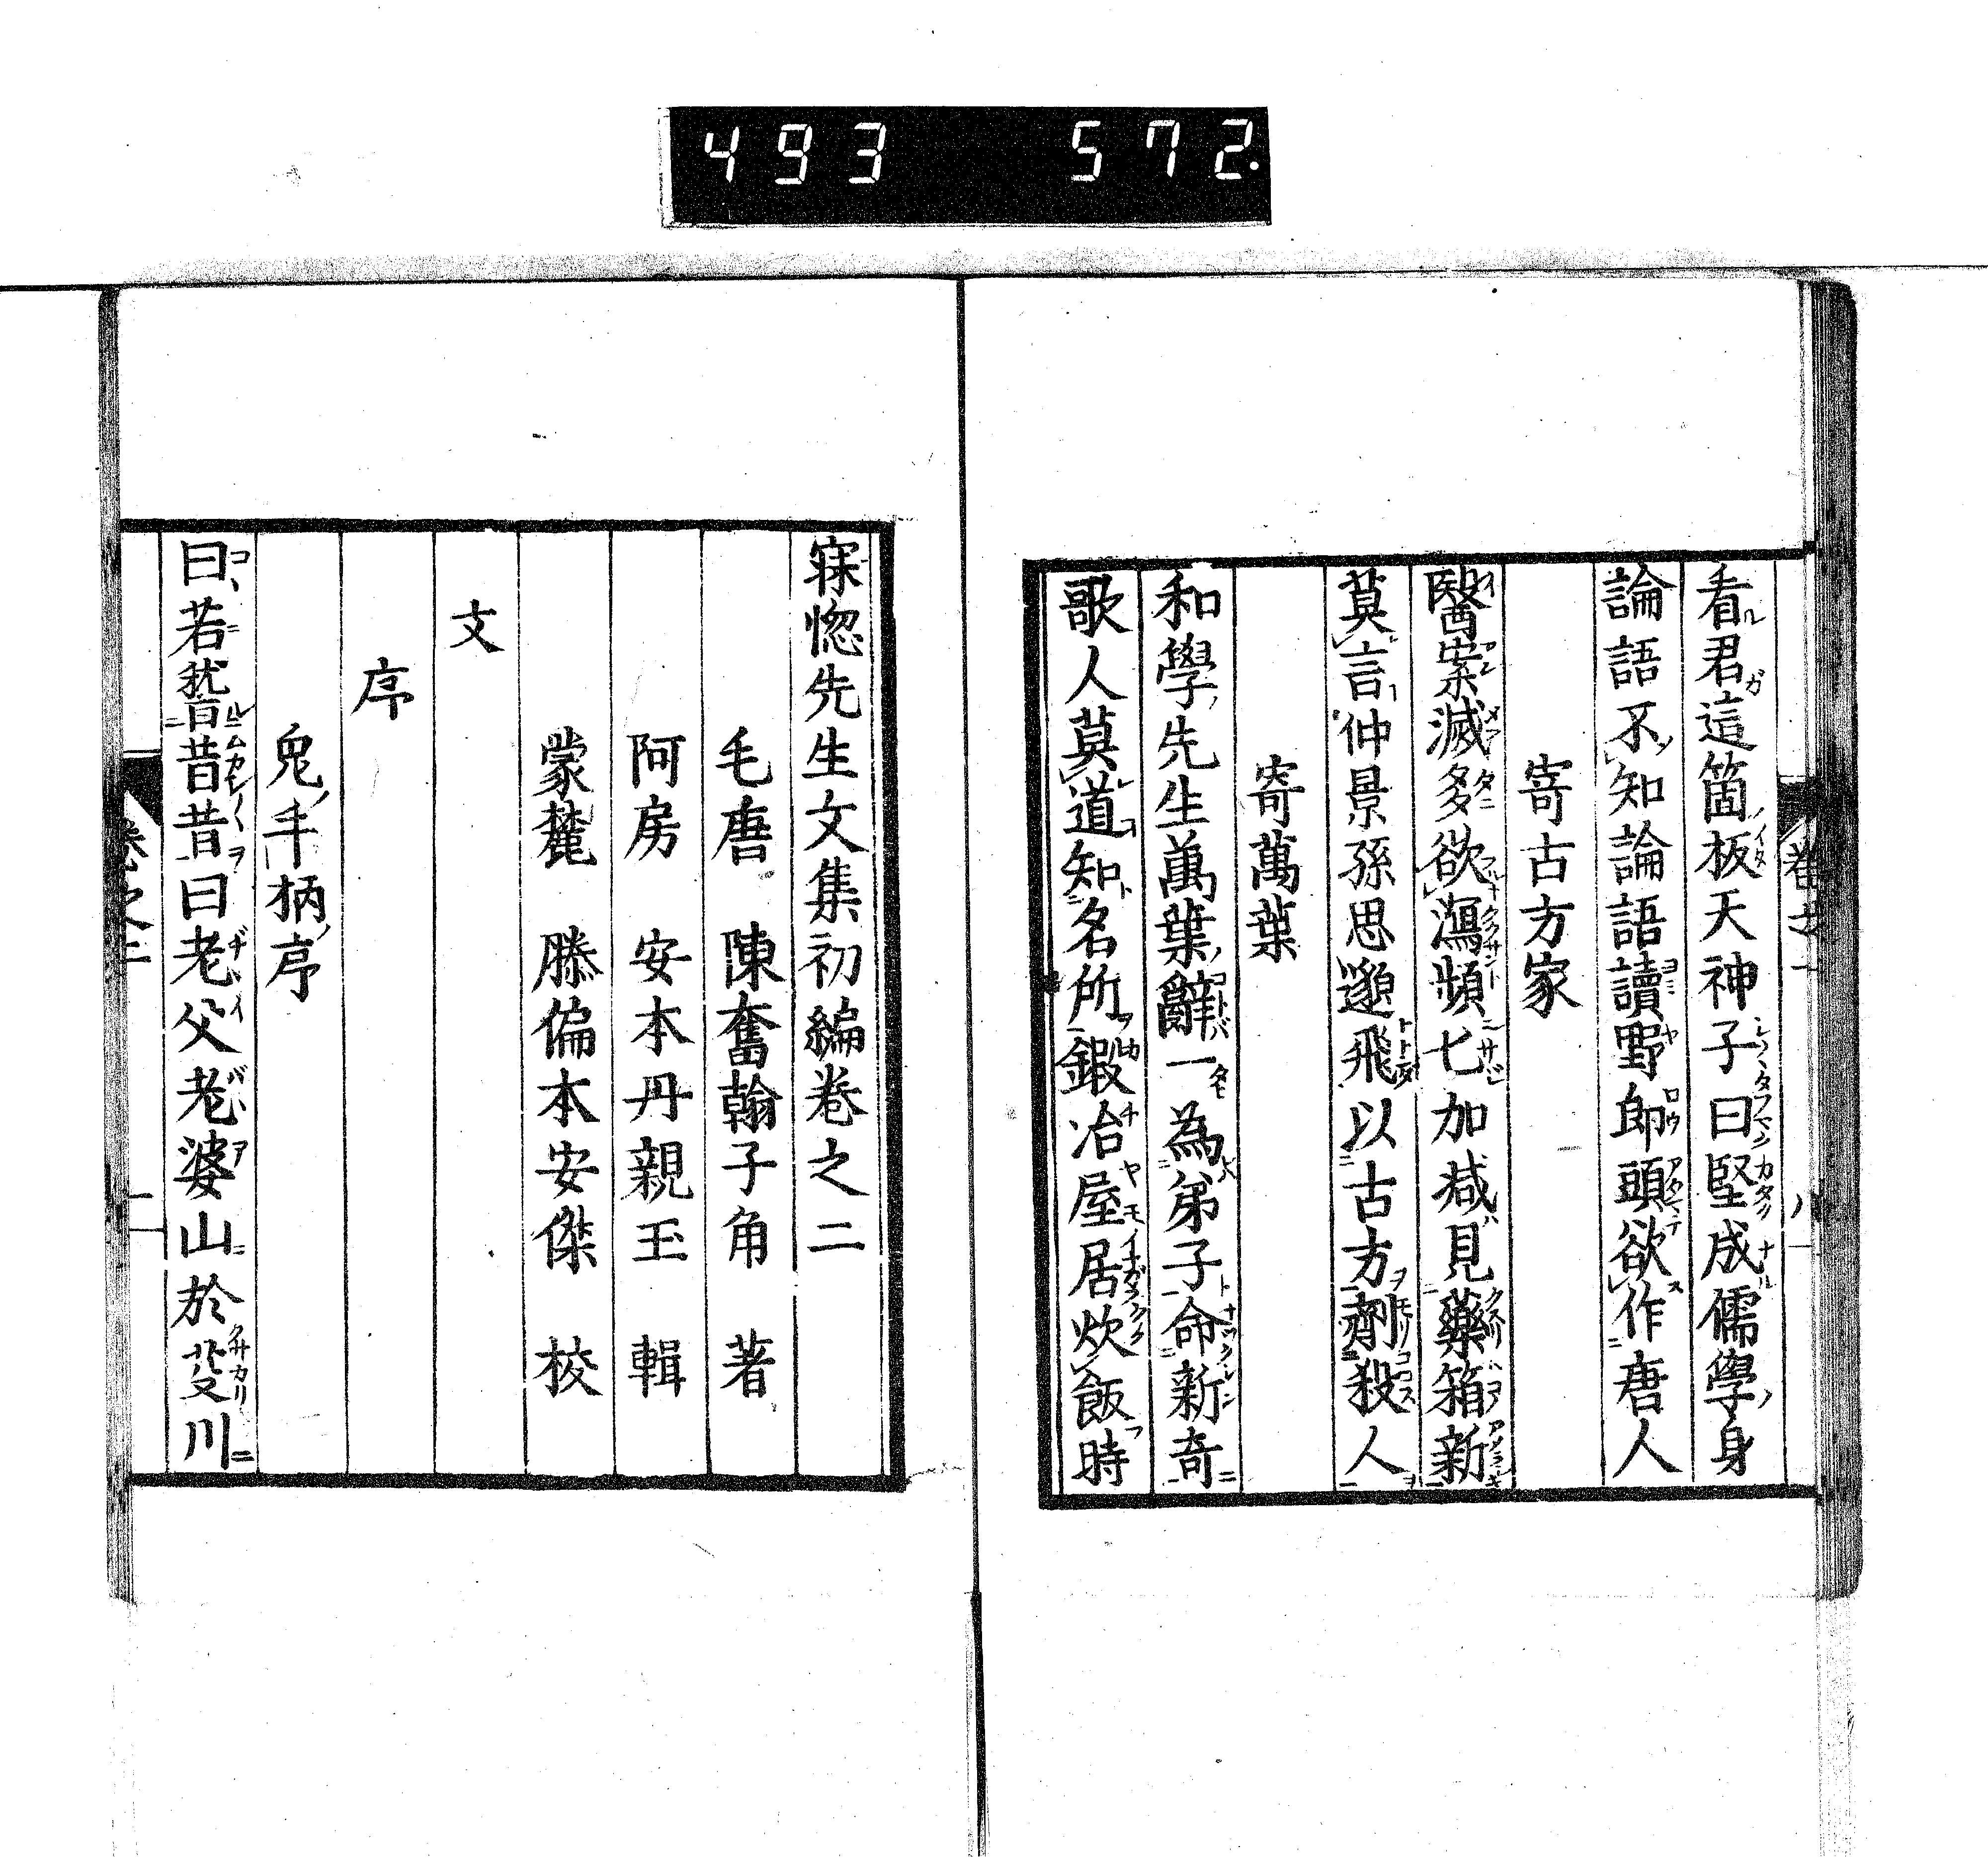 493 572.
看君這箇板天神子曰堅成儒學身
論語不知論語讀野郎頭欲作唐人
寄古方家
醫案滅多欲瀉頻匕加減見藥箱新
莫言仲景孫思邈飛以古方劑殺人
寄萬葉
和學先生萬葉辭一為弟子命新奇
歌人莫道知名所鍜冶屋居炊飯時
寐惚先生文集初編卷之二
毛唐 陳奮翰子角 著
阿房 安本丹親玉 輯
蒙麓 滕偏本安傑 校
文
序
鬼手柄序
曰若 昔昔曰老父老婆山於 川
卷之二